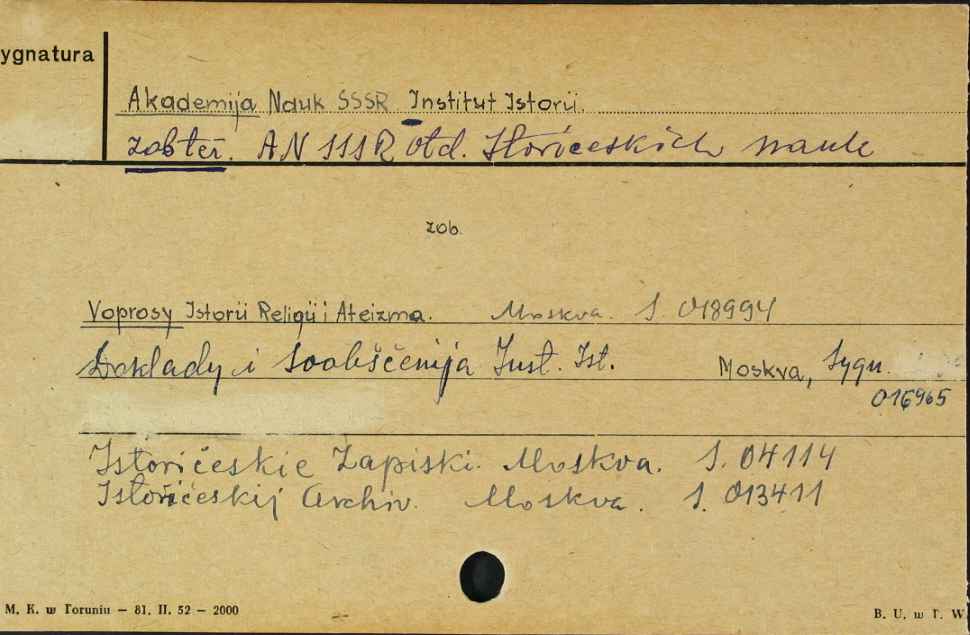 ygnatura
Akademija Nauk SSSR Institut Istorii.
zob też. AN SSSR otd. Istoričeskich nauk
zob.
Voprosy Istorii Religii i Ateizma. Moskva. S. 018994
Doklady i Soobščenija Inst. Ist. Moskva, Sygn.
016965
Istoričeskie Zapiski. Moskva. S. 04114
Istoričeskij Archiv. Moskva. S. 013411
M. K. w Toruniu — 81. II. 52 — 2000
B. U. w T. W